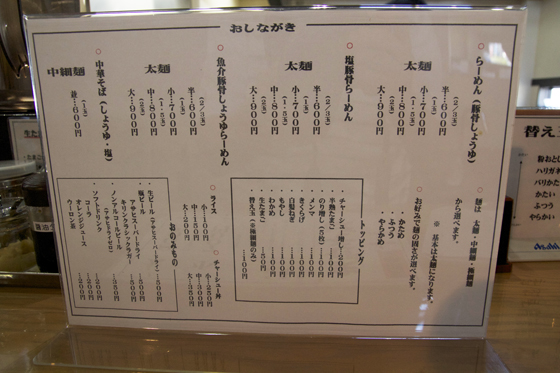 おしながき
○らーめん（豚骨しょうゆ）
太麺
半…600円
（2/3玉）
小…700円
（1玉）
中…800円
（1.5玉）
大…900円
（2玉）
○塩豚骨らーめん
太麺
半…600円
（2/3玉）
小…700円
（1玉）
中…800円
（1.5玉）
大…900円
（2玉）
○魚介豚骨しょうゆらーめん
太麺
半…600円
（2/3玉）
小…700円
（1玉）
中…800円
（1.5玉）
大…900円
（2玉）
○中華そば（しょうゆ・塩）
中細麺
並…600円
（1玉）
○麺は 太麺・中細麺・極細麺
から選べます。
※基本は太麺になります。
○お好みで麺の固さが選べます。
・かため
・ふつう
・やわめ
トッピング
・チャーシュー増し…200円
・半熟たまご…100円
・のり増し（5枚）…100円
・メンマ…100円
・きくらげ…100円
・白髪ねぎ…100円
・もやし…100円
・わかめ…100円
・生たまご…50円
・替え玉（※極細麺のみ）…100円
○ライス
小…100円
中…150円
大…200円
○チャーシュー丼
小…250円
中…300円
大…350円
おのみもの
・生ビール（アサヒスーパードライ）…500円
・瓶ビール
アサヒスーパードライ…500円
キリンクラシックラガー…500円
・ノンアルコールビール…350円
（アサヒドライゼロ）
・ソフトドリンク
コーラ…200円
オレンジジュース…200円
ウーロン茶…200円
替え
粉おと
ハリガ
バリかた
かたい
ふつう
やらかい
Asahi
生た
醤油